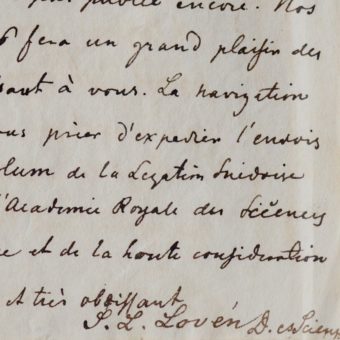 publié encore. Nos
fera un grand plaisir des
sant à vous. La navigation
ous prier d'expedier l'envois
olum de la Legation Suédoise
l'Academie Royale des Sciences
e et de la haute consideration
et très obéissant
S. L. Lovén D. es Sciens